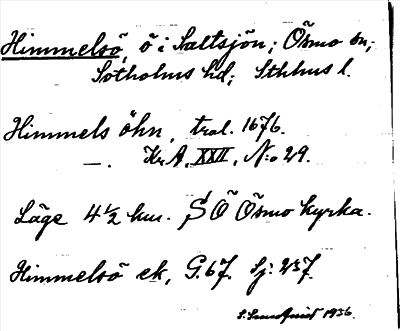 Himmelsö, ö i Saltsjön; Ösmo sn;
Sotholms hd; Sthlms l.
Himmels öhn, tral. 1676.
—. Kr A, XXII, N:o 29.
Läge 4½ km. S Ö Ösmo kyrka.
Himmelsö ek, G.67. Sj: 237.
1936.